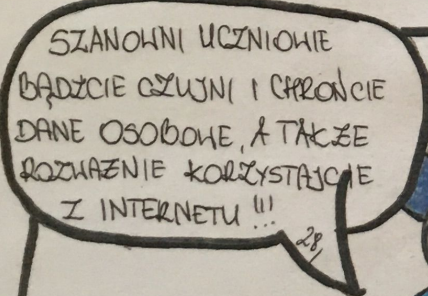 SZANOWNI UCZNIOWIE
BĄDŹCIE CZUJNI I CHROŃCIE
DANE OSOBOWE, A TAKŻE
ROZWAŻNIE KORZYSTAJCIE
Z INTERNETU !!!
28,